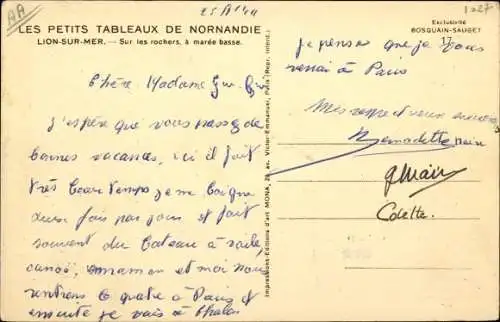 AA
25 A 44
1027
LES PETITS TABLEAUX DE NORMANDIE
LION-SUR-MER. — Sur les rochers, à marée basse.
Exclusivité
BOSQUAIN-SAUGET
17
Chère Madame
J'espère que vous passez de
bonnes vacances, ici il fait
très beau temps je me baigne
deux fois par jours et fait
souvent du bateau à voile,
canoë, maman et moi nous
rentrons le quatre à Paris et
ensuite je vais à
Impressions-Editions d'art MONA, 26, av. Victor-Emmanuel, Paris (Repr. interd.)
je pense que je vous
verrai à Paris
Mes respectueux
Bernadette
Colette.